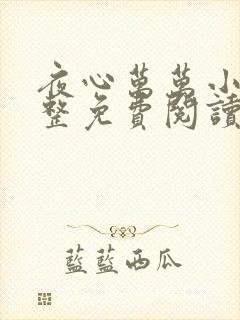 夜心萬萬小
整免費閱讀
藍藍西瓜